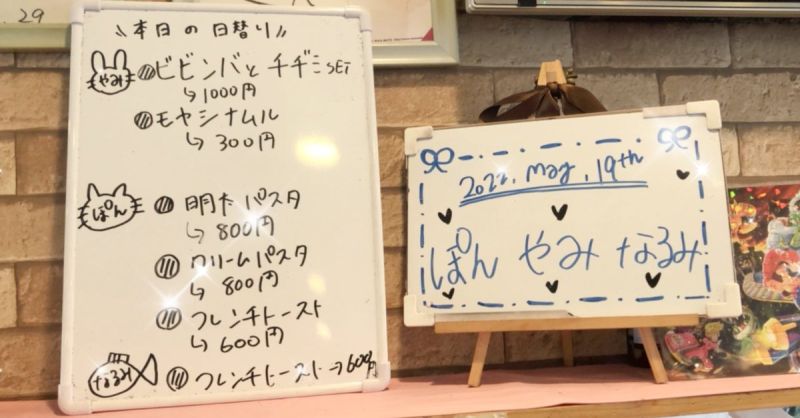 29
\\ 本日の日替り //
やみ
ビビンバとチヂミSET
↳1000円
モヤシナムル
↳300円
ぽん
明太パスタ
↳800円
クリームパスタ
↳800円
フレンチトースト
↳600円
なるみ
フレンチトースト→600円
2022. May. 19th
ぽん やみ なるみ